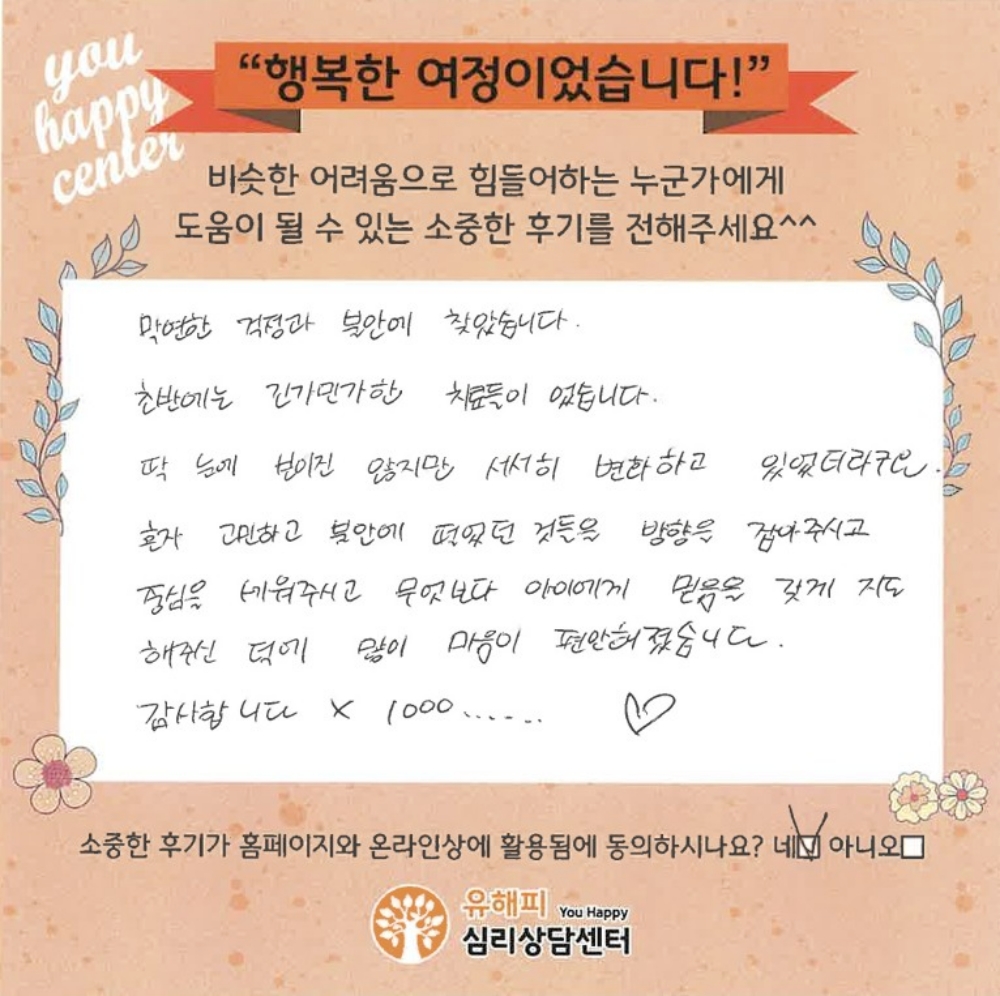 you
happy
center
“행복한 여정이었습니다!”
비슷한 어려움으로 힘들어하는 누군가에게
도움이 될 수 있는 소중한 후기를 전해주세요^^
막연한 걱정과 불안에 찾았습니다.
초반에는 긴가민가한 치료들이 었습니다.
딱 눈에 보이진 않지만 서서히 변화하고 있었더라구요.
혼자 고민하고 불안에 떨었던 것들을 방향을 잡아주시고
중심을 세워주시고 무엇보다 아이에게 믿음을 갖게 지도
해주신 덕에 많이 마음이 편안해졌습니다.
감사합니다 × 1000......
소중한 후기가 홈페이지와 온라인상에 활용됨에 동의하시나요? 네 아니오
유해피 You Happy
심리상담센터